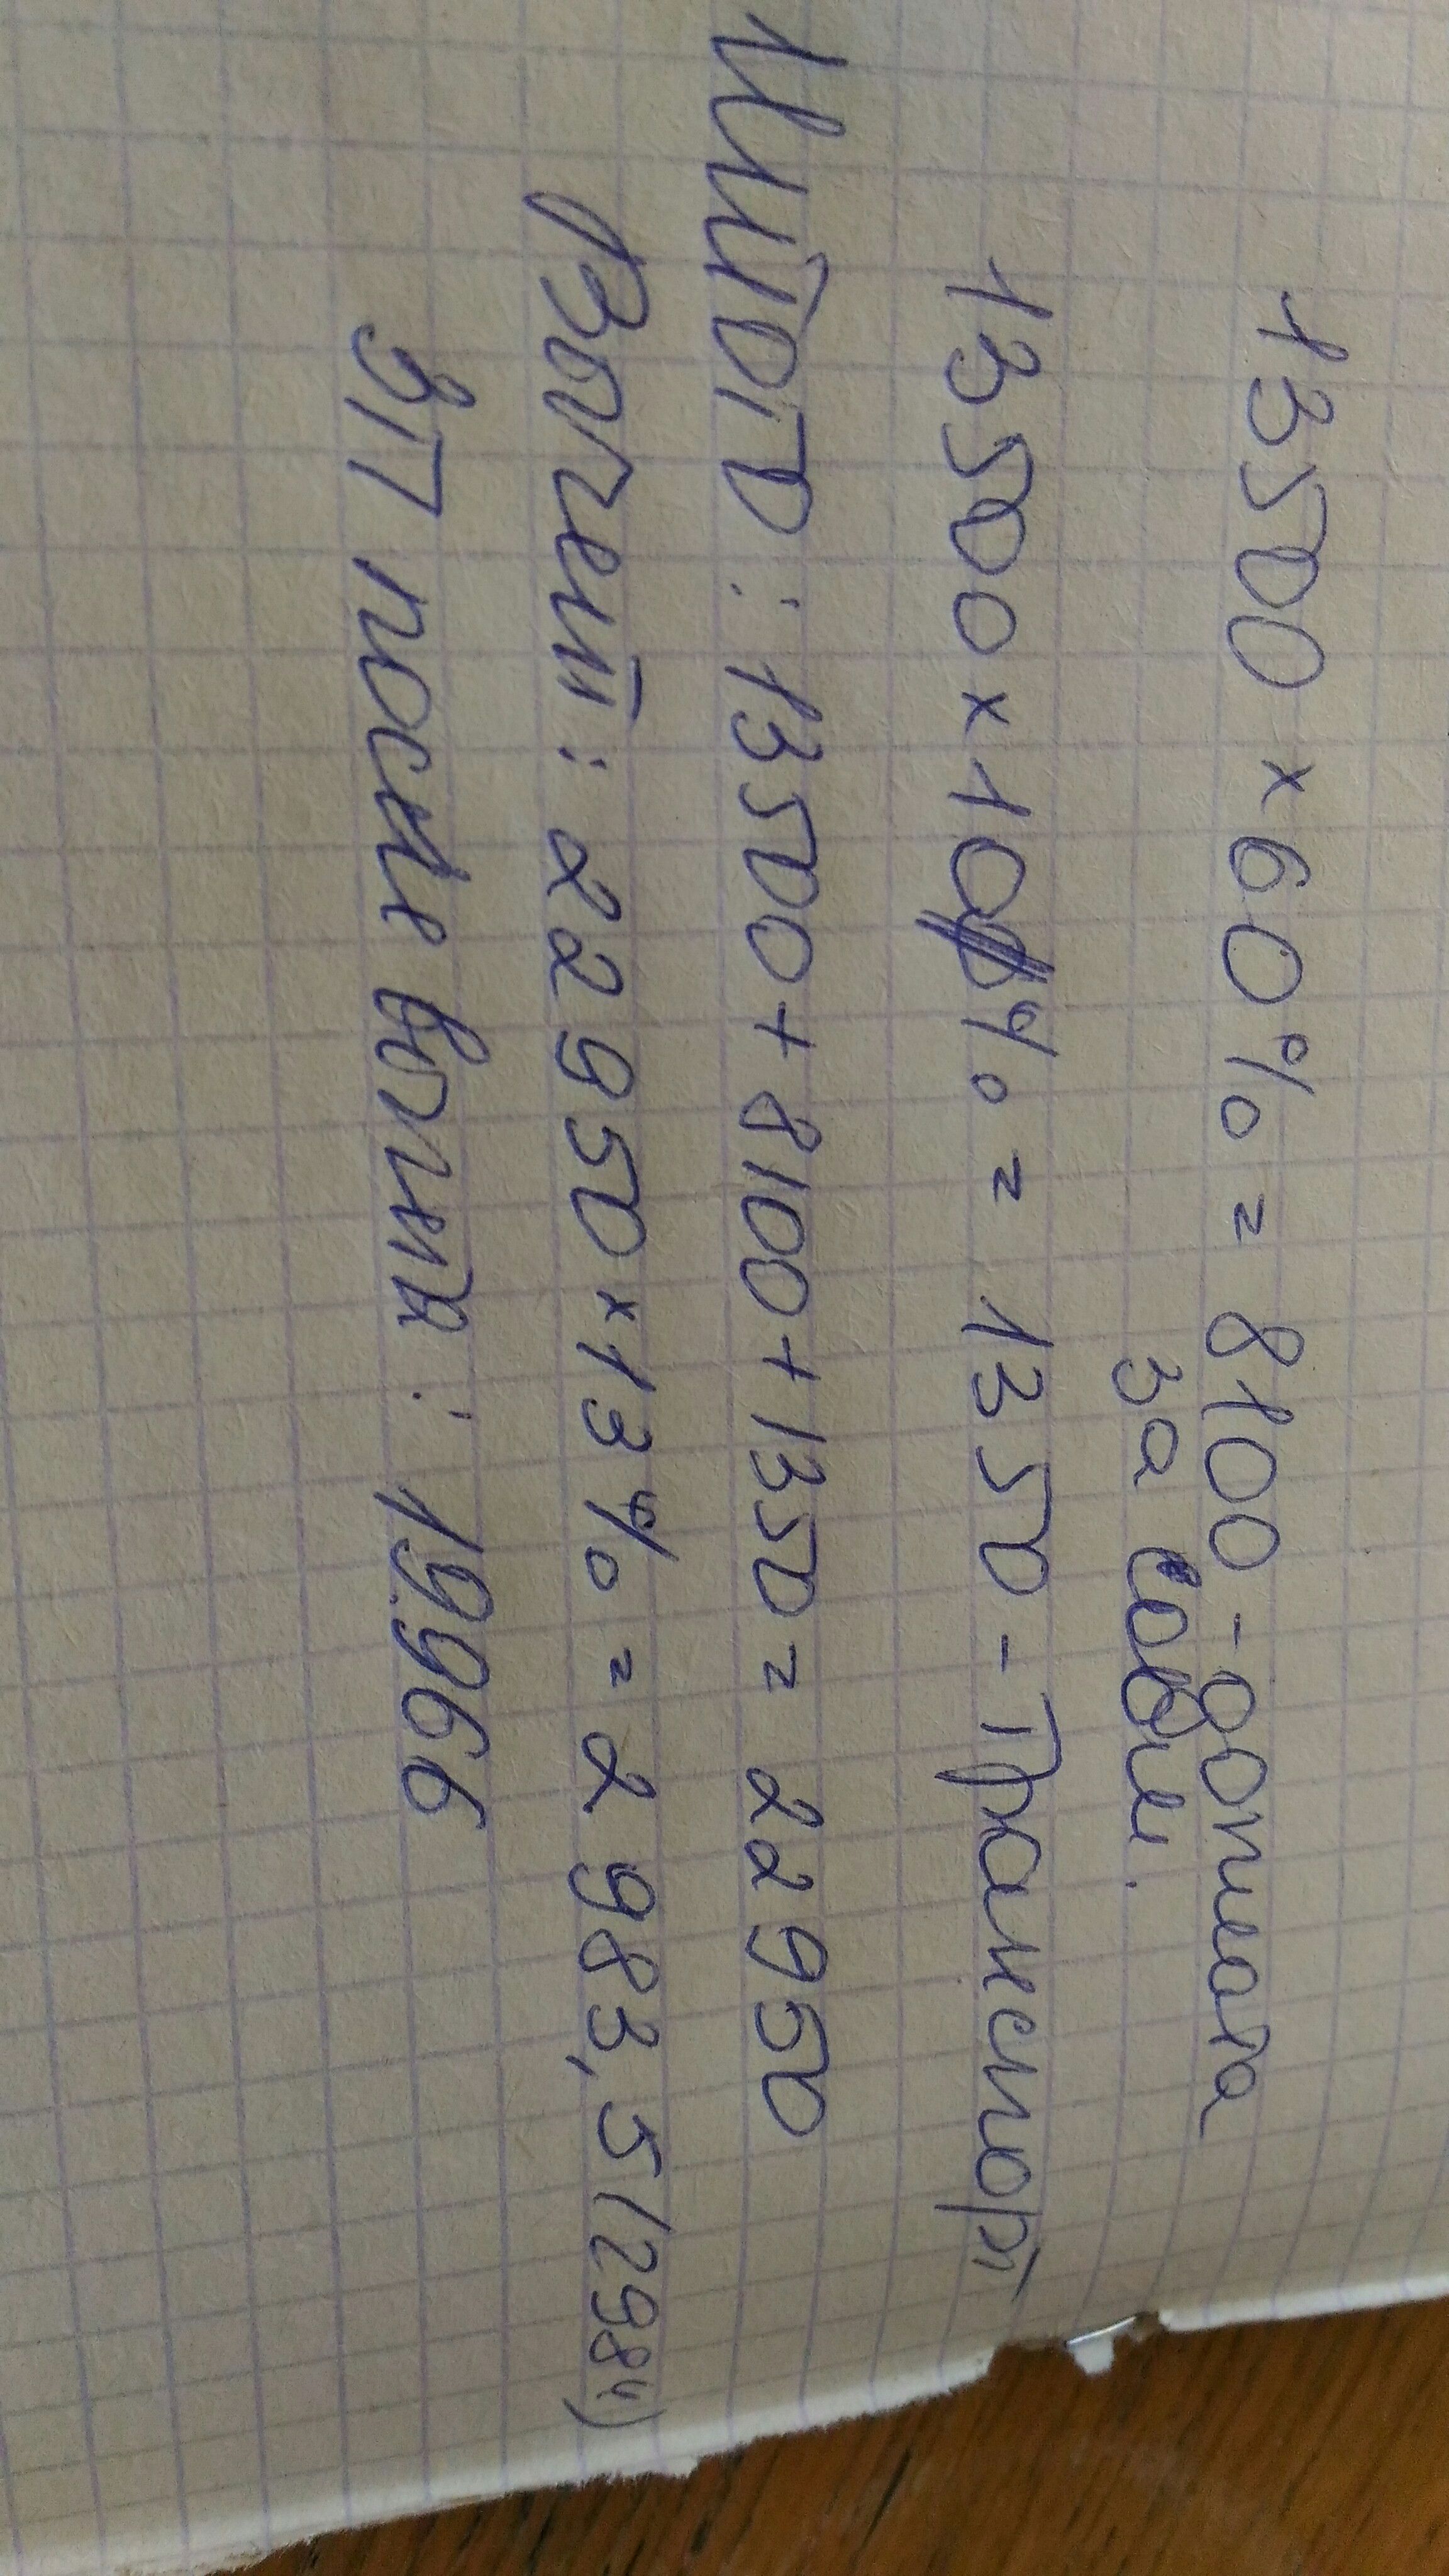 13500 × 60% = 8100 - доплата
за совм.
13500 × 10% = 1350 - Транспорт
Итого: 13500 + 8100 + 1350 = 22950
Вычет: 22950 × 13% = 2983,5 (2984)
ЗП после вычета: 19966